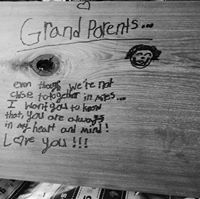 Grand Parents...
even though we're not
close together in miles...
I want you to know
that, you are always
in my heart and mind!
Love you!!!